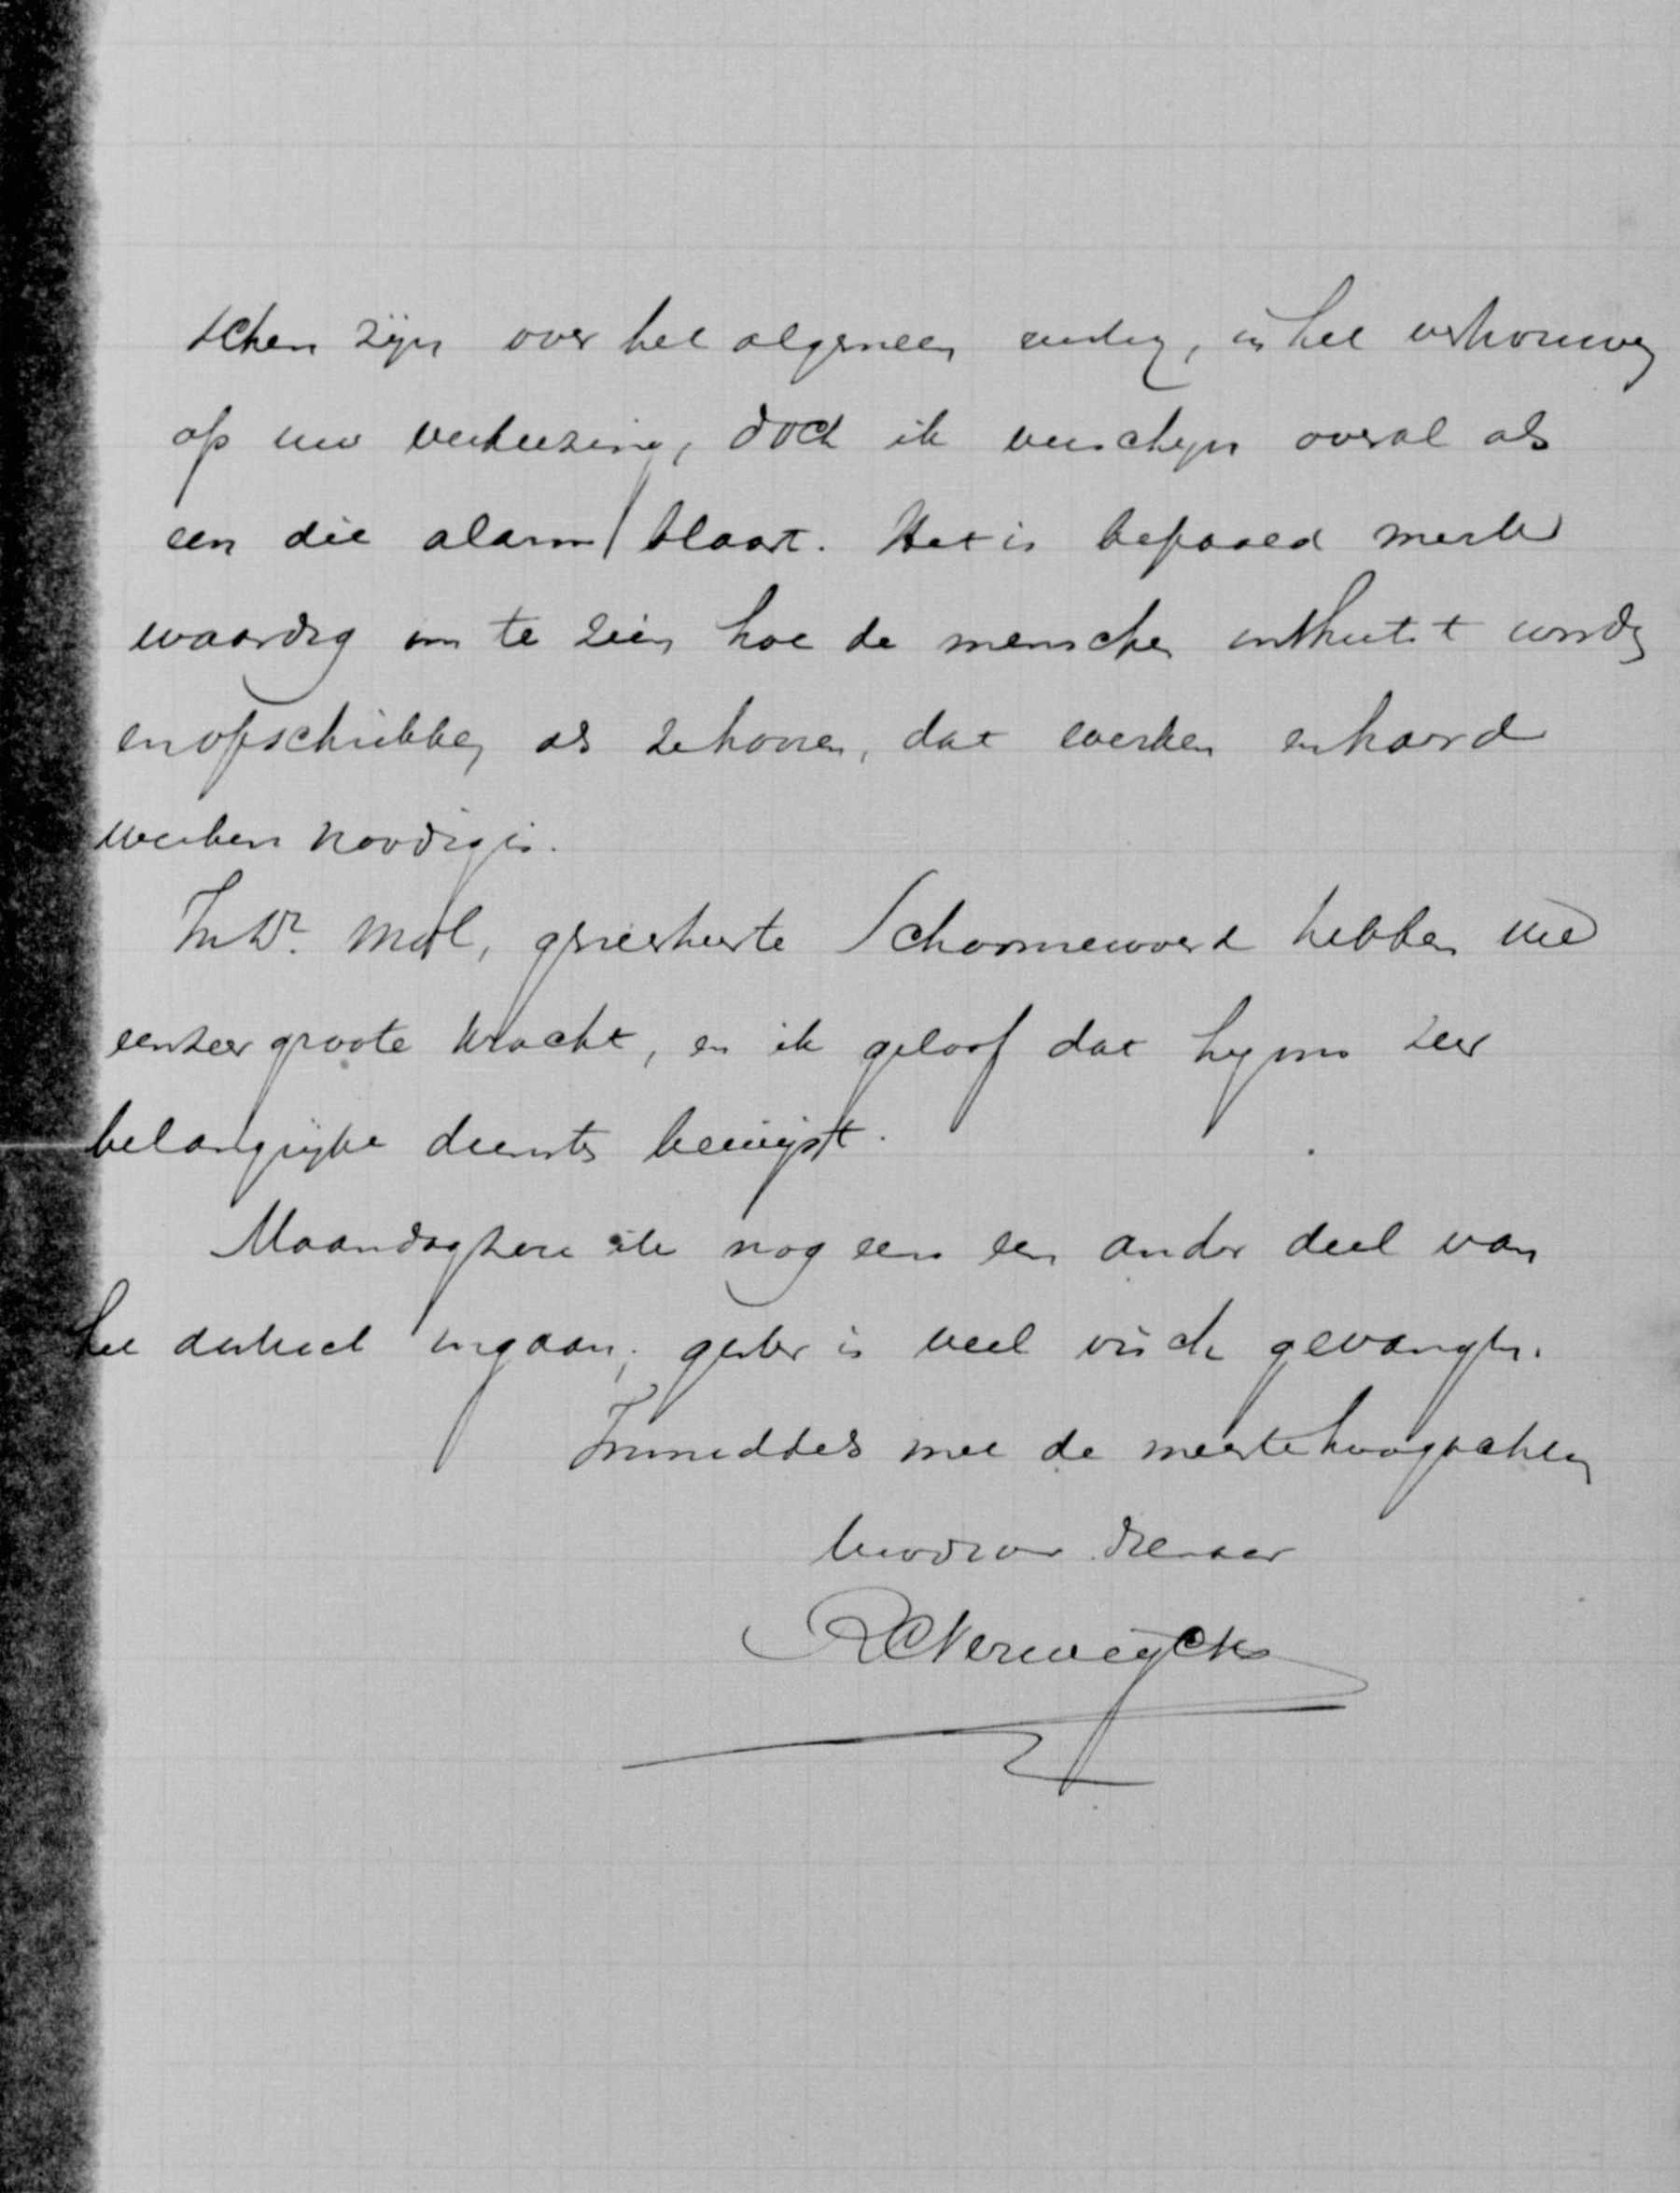 schen zijn over het algemeen rustig, in het vertrouwen
op uw verkiezing, doch ik verschijn overal als
een die alarm blaast. Het is bepaald merk
waardig om te zien hoe de menschen onthutst worden
en opschrikken als ze hooren, dat werken en hard
werken noodig is.
In Dr. Mol, geneesheer te Schoonrewoerd hebben we
een zeer groote kracht, en ik geloof dat hij ons zeer
belangrijke diensten bewijst.
Maandag zou ik nog eens een ander deel van
het district ingaan; gister is veel visch gevangen.
Inmiddels met de meeste hoogachting
Uw dienaar
R C Verweyck